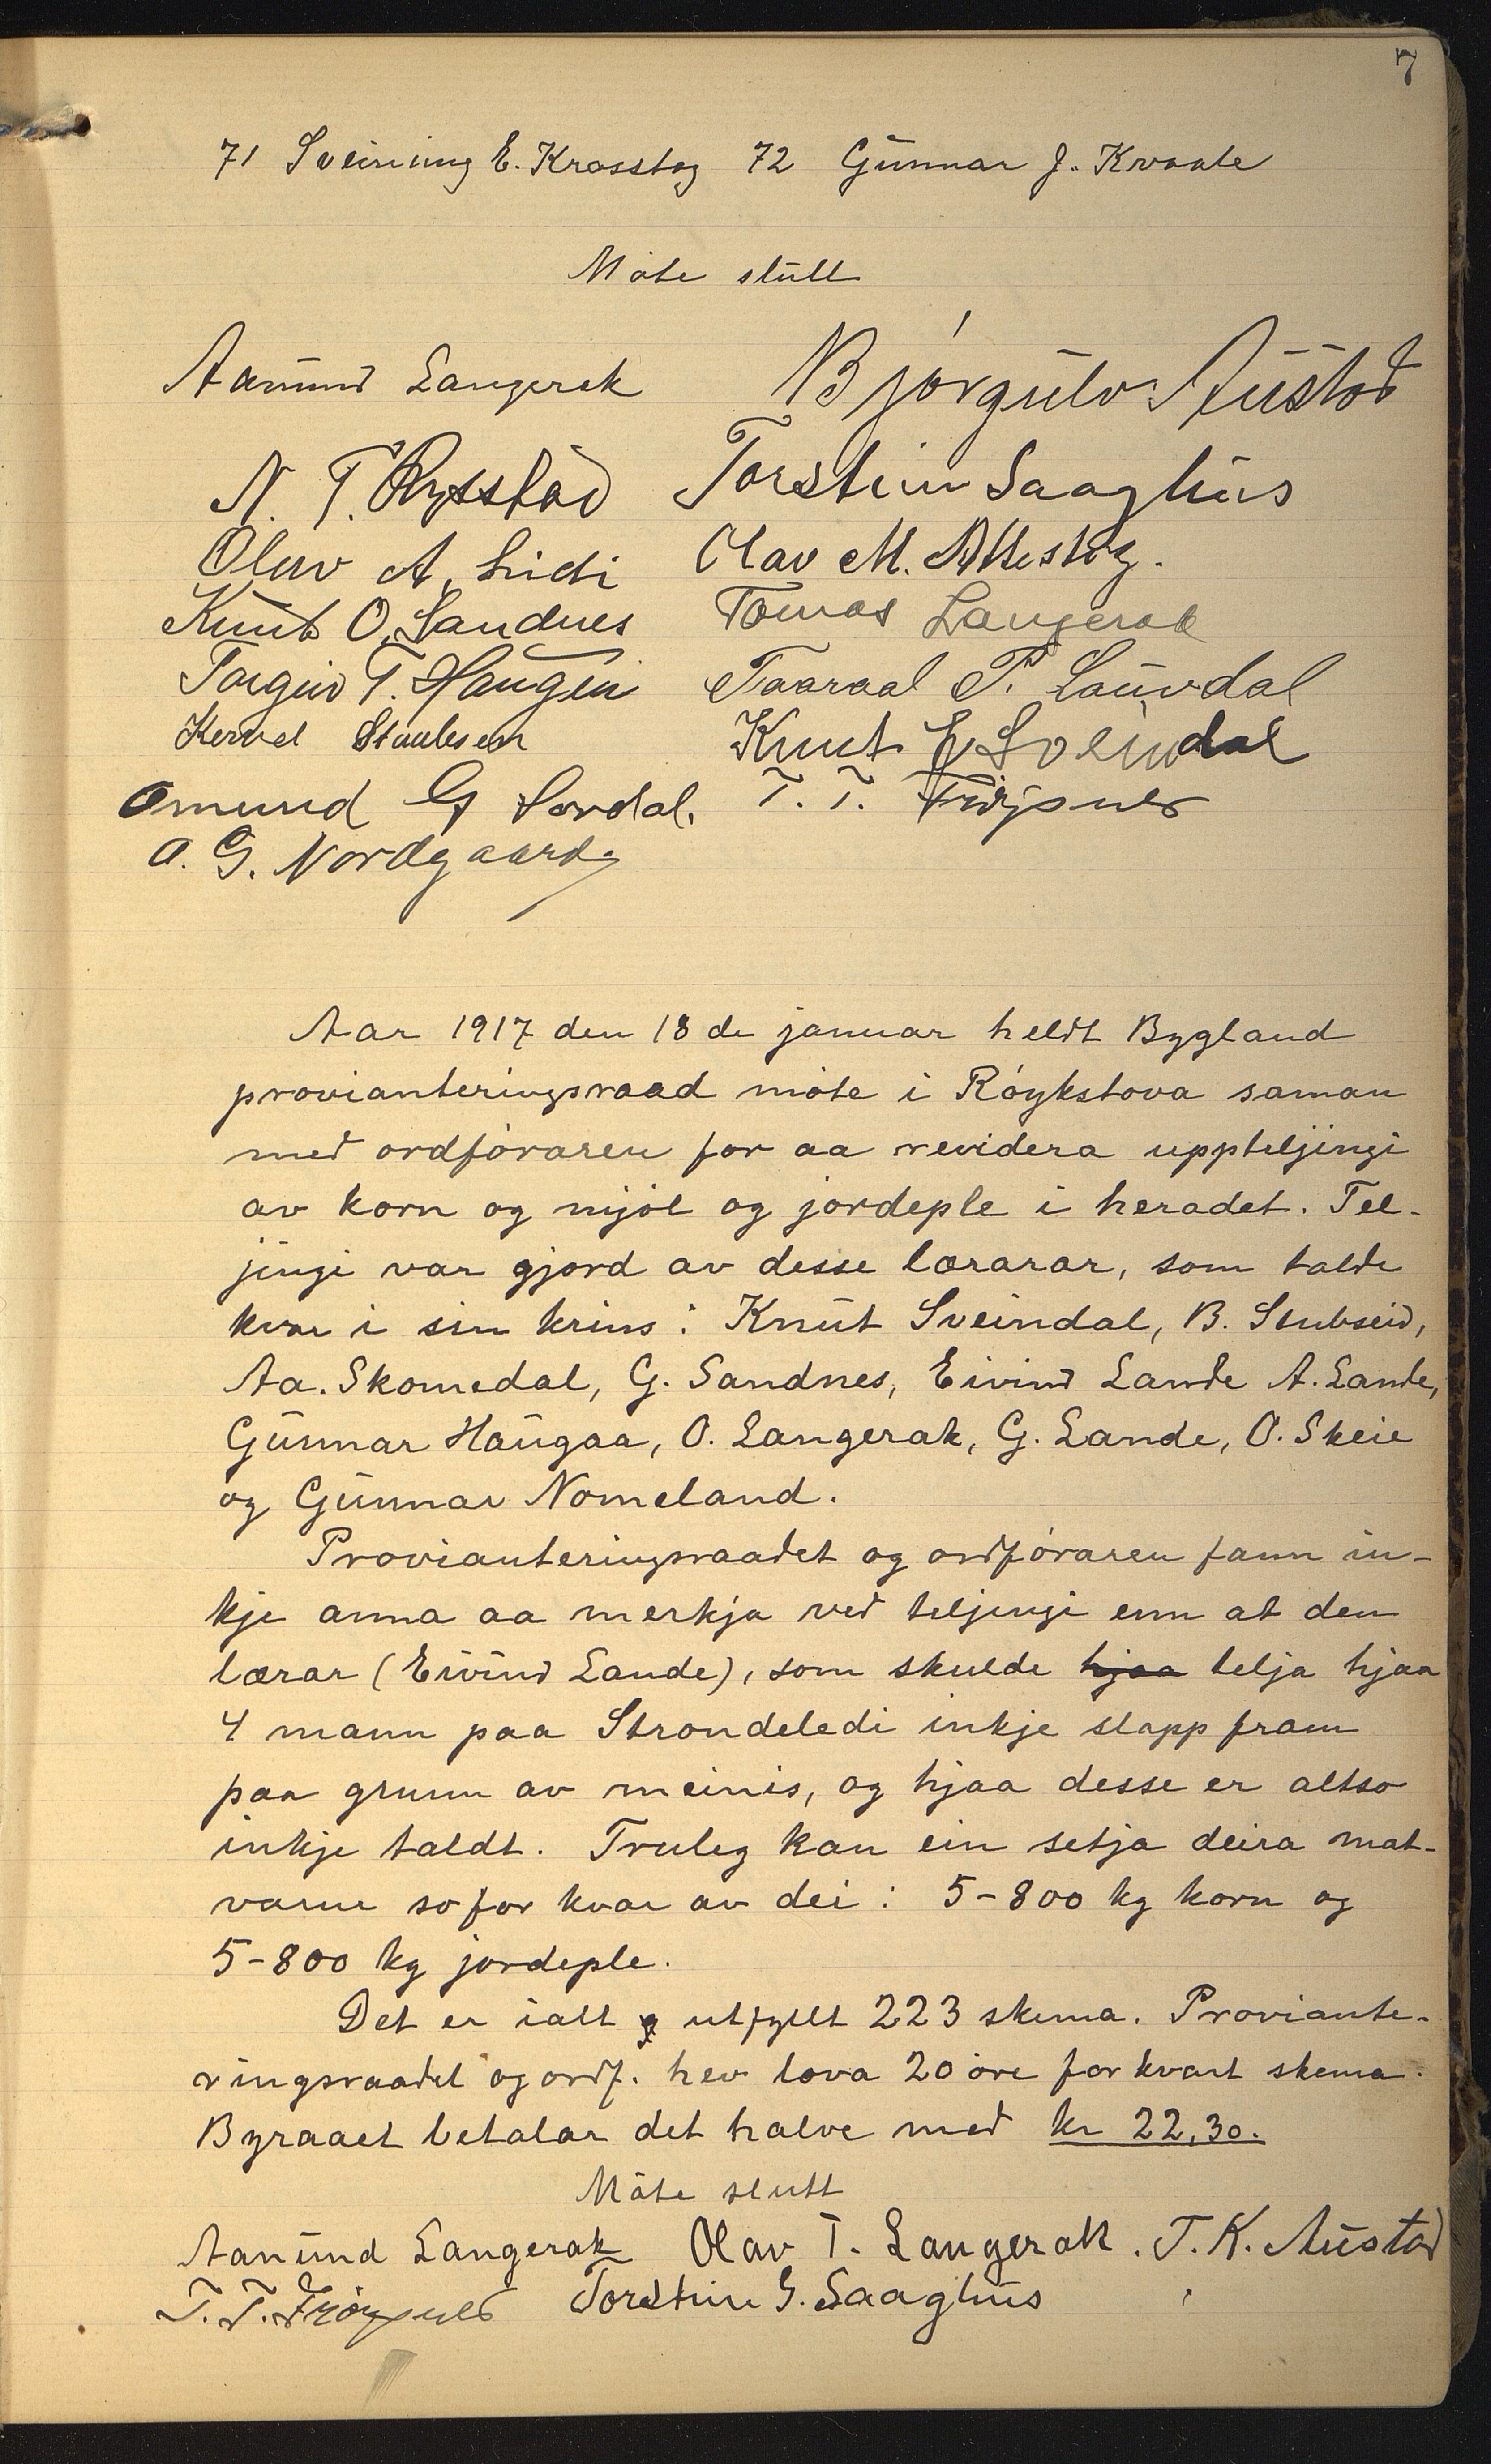 7
71 Sveinung E. Krosstog 72 Gunnar J. Kvaale
Møte slutt
Aanund Langerak Bjørgulv Austad
N. T. Rysstad Torstein Saaghus
Olav A. Lidi Olav M.
Knut O. Sandnes Tomas Langerak
Torgeir T. Haugen Taaraal P. Lauvdal
Kervel Stuubseth Knut E Sveindal
Omund G Sordal. T. T. Frøysnes
O. G. Nordgaard
Aar 1917 den 18 de januar heldt Bygland
provianteringsraad møte i Røykstova saman
med ordføraren for aa revidera uppteljingi
av korn og mjøl og jordeple i heradet. Tel-
jingi var gjord av desse lærarar, som talde
kvar i sin krins: Knut Sveindal, B. Stubseid,
Aa. Skomedal, G. Sandnes, Eivind Lande A. Lande,
Gunnar Haugaa, O. Langerak, G. Lande, O. Skeie
og Gunnar Nomeland.
Provianteringsraadet og ordføraren fann in-
kje anna aa merkja ved teljingi enn at den
lærar (Eivind Lande), som skulde hjaa telja hjaa
4 mann paa Strondeledi inkje slapp fram
paa grunn av meinis, og hjaa desse er altso
inkje taldt. Truleg kan ein setja deira mat-
varur so for kvar av dei: 5-800 kg korn og
5-800 kg jordeple.
Det er ialt utfyllt 223 skema. Proviante-
ringsraadet og ordf. hev lova 20 øre for kvart skema.
Byraaet betalar det halve med kr 22,30.
Møte slutt
Aanund Langerak Olav T. Langerak. T. K. Austad
T. T. Frøysnes Torstein G. Saaghus